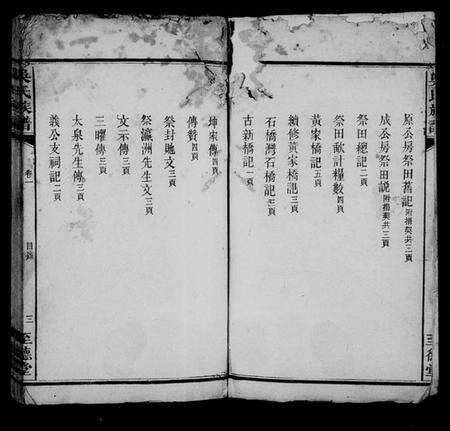 原公房祭田舊記附捐契共三頁
成公房祭田說附捐契共三頁
祭田總記二頁
祭田畝計糧數四頁
黃家橋記五頁
續修黃家橋記三頁
石橋灣石橋記二頁
古新橋記一頁
坤宋傳四頁
傳贊四頁
祭封馳文三頁
祭瀛洲先生文三頁
文示傳三頁
三曜傳三頁
太泉先生傳三頁
義公支祠記二頁
吳氏族譜
卷一
目錄
三
至德堂
吳氏族譜
至德堂